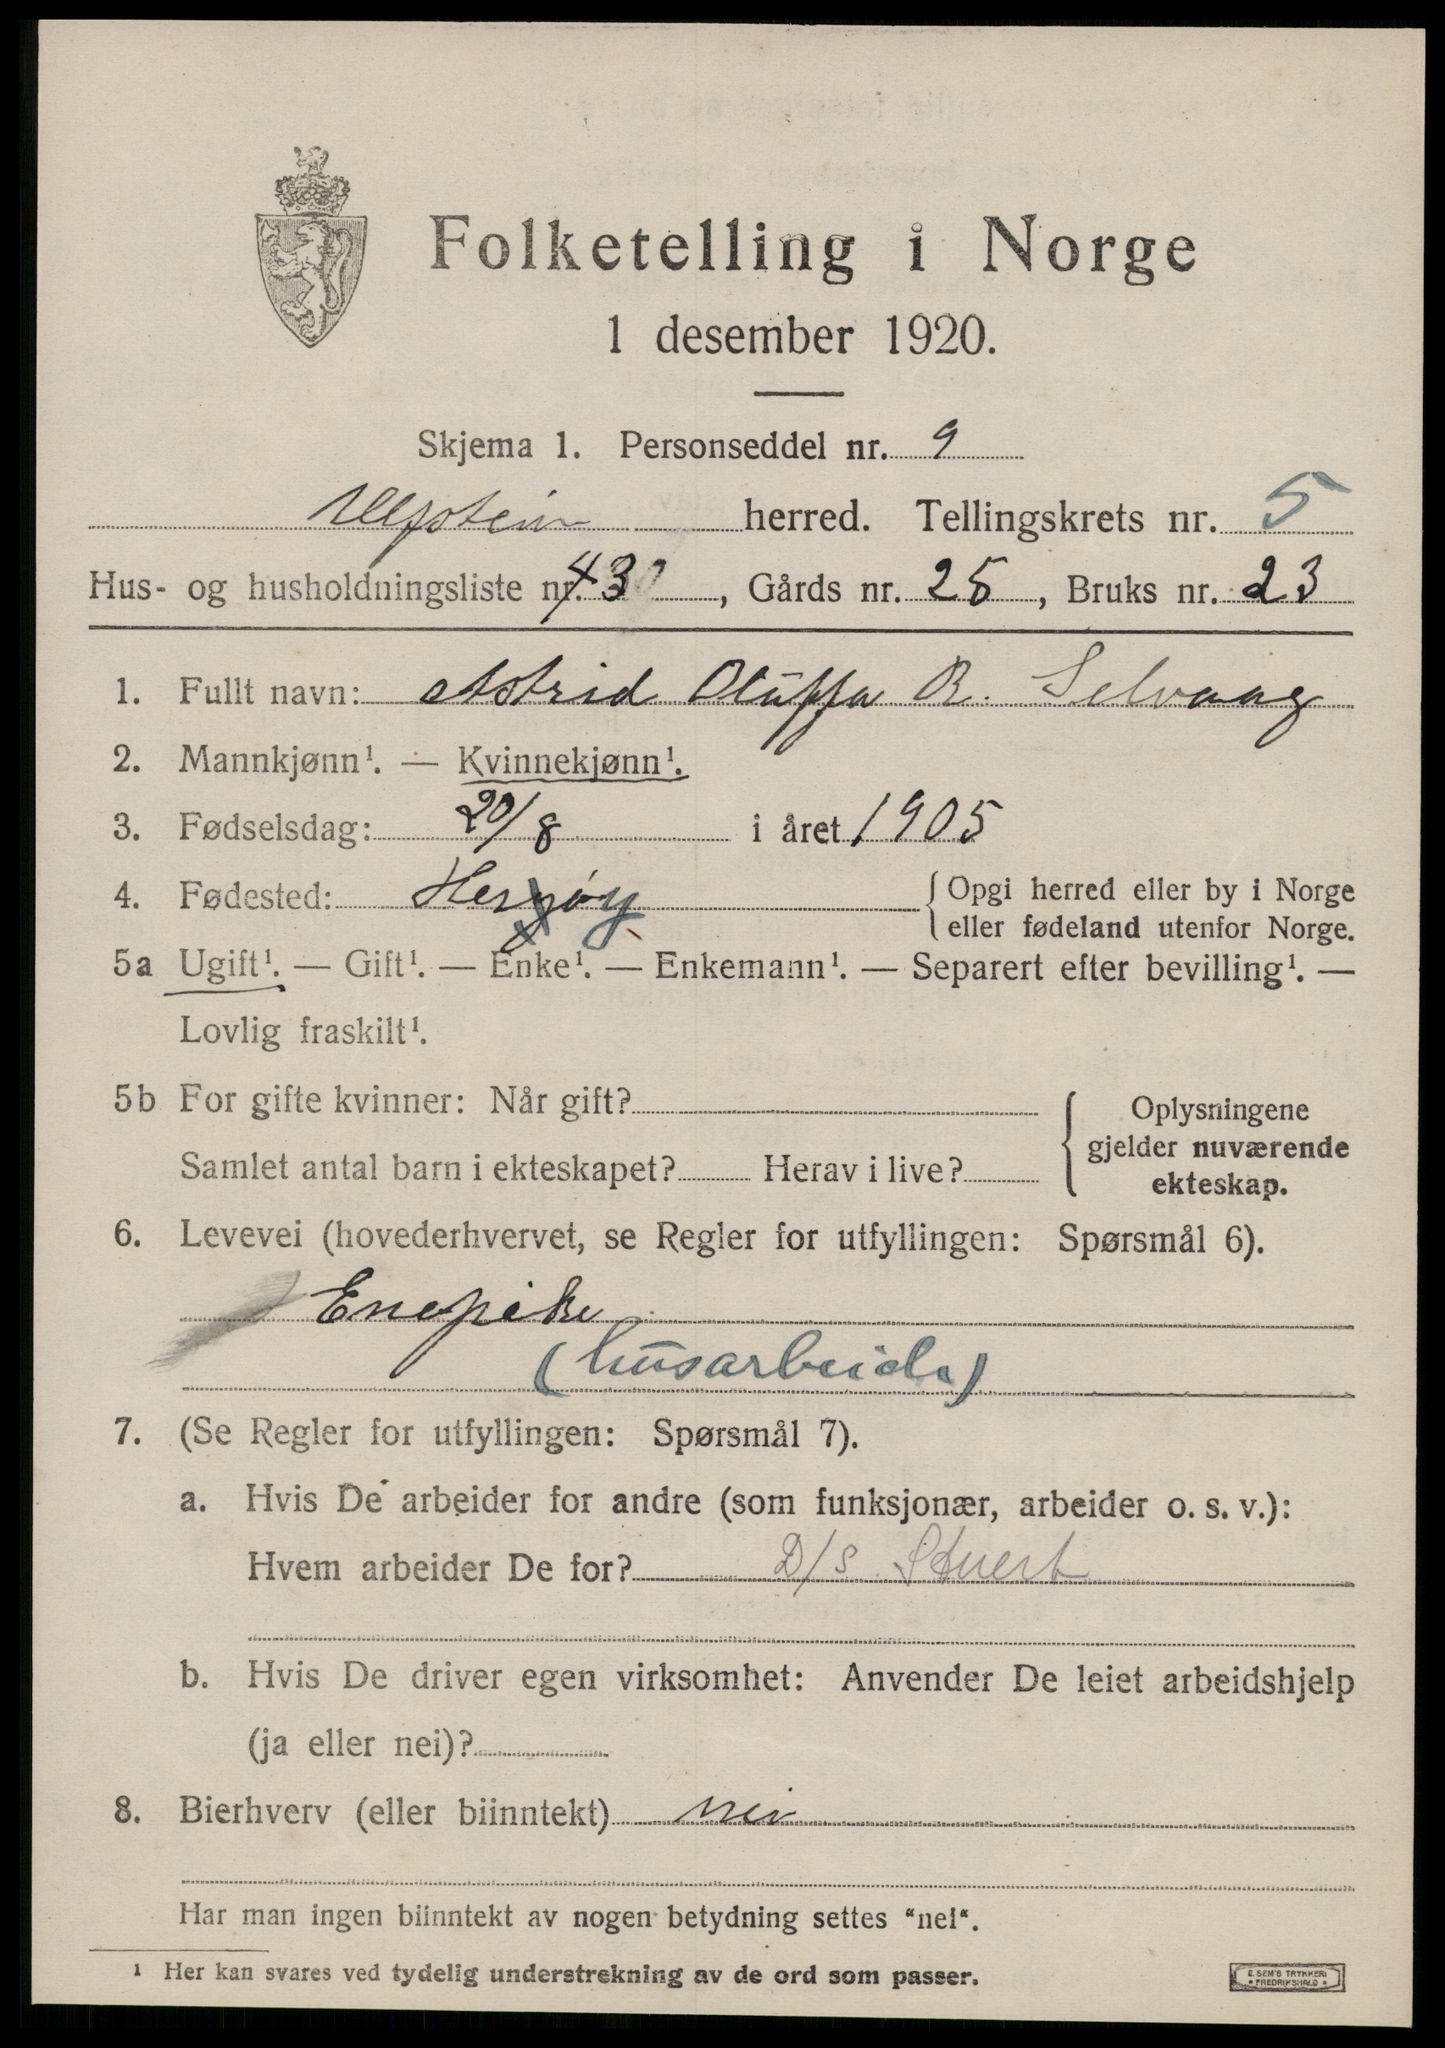 Folketelling i Norge
1 desember 1920.
Skjema 1. Personseddel nr. 9
Ulfstein herred. Tellingskrets nr. 5
Hus- og husholdningsliste nr. 43, Gårds nr. 25, Bruks nr. 23
1. Fullt navn: Astrid Oluffa R. Selvaag
2. Mannkjønn¹. — Kvinnekjønn¹.
3. Fødselsdag: 20/8 i året 1905
4. Fødested: Herøy { Opgi herred eller by i Norge
eller fødeland utenfor Norge.
5a Ugift¹. — Gift¹. — Enke¹. — Enkemann¹. — Separert efter bevilling¹. —
Lovlig fraskilt¹.
5b For gifte kvinner: Når gift? { Oplysningene
gjelder nuværende
Samlet antal barn i ekteskapet? Herav i live?
ekteskap.
6. Levevei (hovederhvervet, se Regler for utfyllingen: Spørsmål 6).
Enepike
(husarbeide)
7. (Se Regler for utfyllingen: Spørsmål 7).
a. Hvis De arbeider for andre (som funksjonær, arbeider o. s. v.):
Hvem arbeider De for? D/S
b. Hvis De driver egen virksomhet: Anvender De leiet arbeidshjelp
(ja eller nei)?
8. Bierhverv (eller biinntekt) nei
Har man ingen biinntekt av nogen betydning settes “nei“.
¹ Her kan svares ved tydelig understrekning av de ord som passer.
E. SEM'S TRYKKERI
• FREDRIKSHALD •